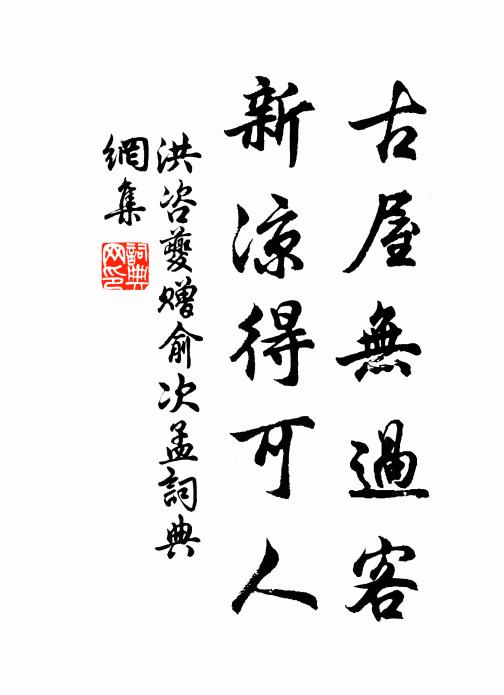 古屋無過客
新涼得可人
洪咨夔贈俞次孟詞典
網集
詞典
网印